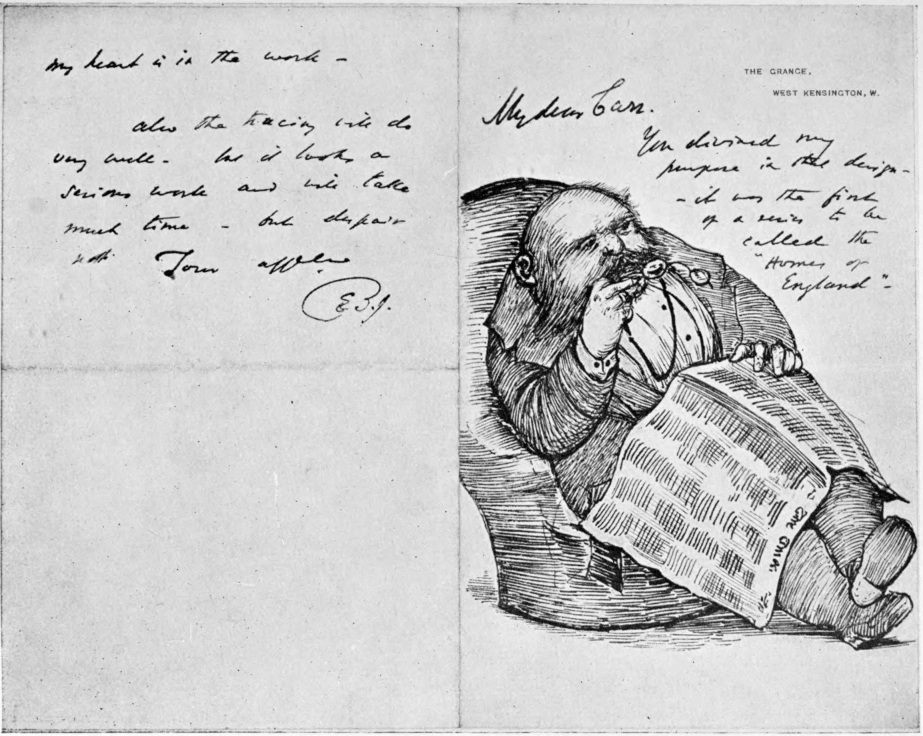 THE GRANGE,
WEST KENSINGTON, W.
My dear Carr.
You divined my
purpose in that design -
- it was the first
of a series to be
called the
"Homes of
England" -
my heart is in the work -
also the tracing will do
very well - but it looks a
serious work and will take
much time - but despair
not. Your
E B.J.